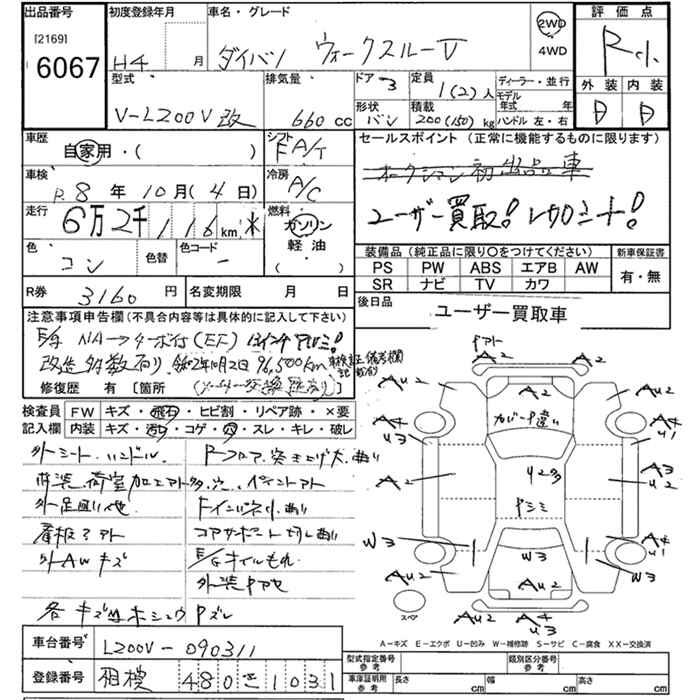 出品番号
[2169]
6067
初度登録年月
H4 月
車名・グレード
ダイハツ ウォークスルーV
2WD
4WD
評価点
R
外装 内装
D D
型式
V-L200V改
排気量
660 cc
ドア
3
形状
バン
定員
1(2)人
積載
200(150)kg
ディーラー・並行
モデル年式 年
ハンドル 左・右
車歴
自家用・( )
シフト
FA/T
セールスポイント(正常に機能するものに限ります)
オークション初出品車
ユーザー買取!
車検
R8年10月(4日)
冷房
A/C
走行
6万2千116km
燃料
ガソリン
軽油
( )
色
コン
色替
色コード
-
装備品(純正品に限り○をつけてください)
PS PW ABS エアB AW
SR ナビ TV カワ
新車保証書
有・無
R券
3160円
名変期限 月 日
後日品
ユーザー買取車
注意事項申告欄(不具合内容等は具体的に記入して下さい)
NA→ターボ付(EF) 12インチアルミ!
改造多数有り 令和2年10月2日 96,500km
修復歴 有[箇所
検査員記入欄
FW キズ・飛石・ヒビ割・リペア跡・×要
内装 キズ・汚・コゲ・穴・スレ・キレ・破レ
外シート、ハンドル
Fフロア突き上げ大、曲り
内装、荷室加工アト多、穴、ペイントアト
外足廻り他
Fインパネ小曲り
看板アト
コアサポート切レ曲り
外AWキズ
E/Gオイルもれ
外装
各キズ凹
下アト
A2
A2
AU2
AU2
A2
A4
U3
A4
U1
カバー違い
A2
A3
U2
U23
ドシミ
W3
A4
U1
W3
W3
AU2
AU2
AU2
A4
U3
スペア
A-キズ E-エクボ U-凹み W-補修跡 S-サビ C-腐食 XX-交換済
車台番号
L200V-090311
登録番号
相模 480 さ 1031
型式指定番号
参考
類別区分番号
参考
車庫証明用
参考
長さ cm
幅 cm
高さ cm